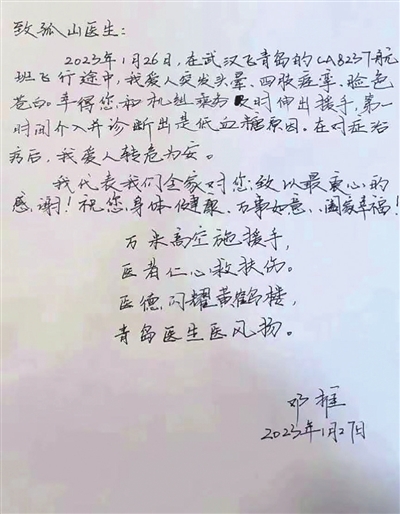 致孤山医生：
2023年1月26日，在武汉飞青岛的CA8237航
班飞行途中，我爱人突发头晕、四肢痉挛、脸色
苍白。幸得您和机组乘务及时伸出援手，第一
时间介入并诊断出是低血糖原因。在对症治
疗后，我爱人转危为安。
我代表我们全家对您致以最衷心的
感谢！祝您身体健康、万事如意、阖家幸福！
万米高空施援手，
医者仁心救扶伤。
医德闪耀黄鹤楼，
青岛医生医风扬。
邓雄
2023年1月27日